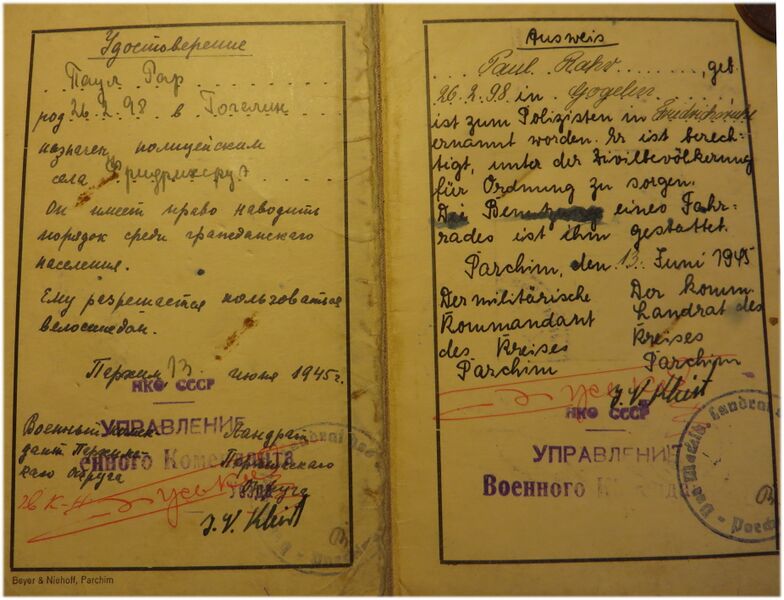 Удостоверение
Паул Рар
род 26.2.98 в Гогелин
назначен полицейским
села Фридрихсруэ
Он имеет право наводить
порядок среди гражданского
населения.
Ему разрешается пользоваться
велосипедом.
Пархим 13 июня 1945г.
НКО СССР
УПРАВЛЕНИЕ
Военного Коменданта
Военный комен
дант Пархим
кого округа
Ландрат
Пархимского
округа
J. V. Kleist
Beyer & Niehoff, Parchim
Ausweis
Paul Rahr, geb.
26.2.98 in Gögelin
ist zum Polizisten in Friedrichsruhe
ernannt worden. Er ist berech-
tigt, unter der Zivilbevölkerung
für Ordnung zu sorgen.
Die Benutzung eines Fahr-
rades ist ihm gestattet.
Parchim, den 13. Juni 1945
Der militärische
Kommandant
des Kreises
Parchim
Der komm.
Landrat des
Kreises
Parchim
J. V. Kleist
НКО СССР
УПРАВЛЕНИЕ
Военного